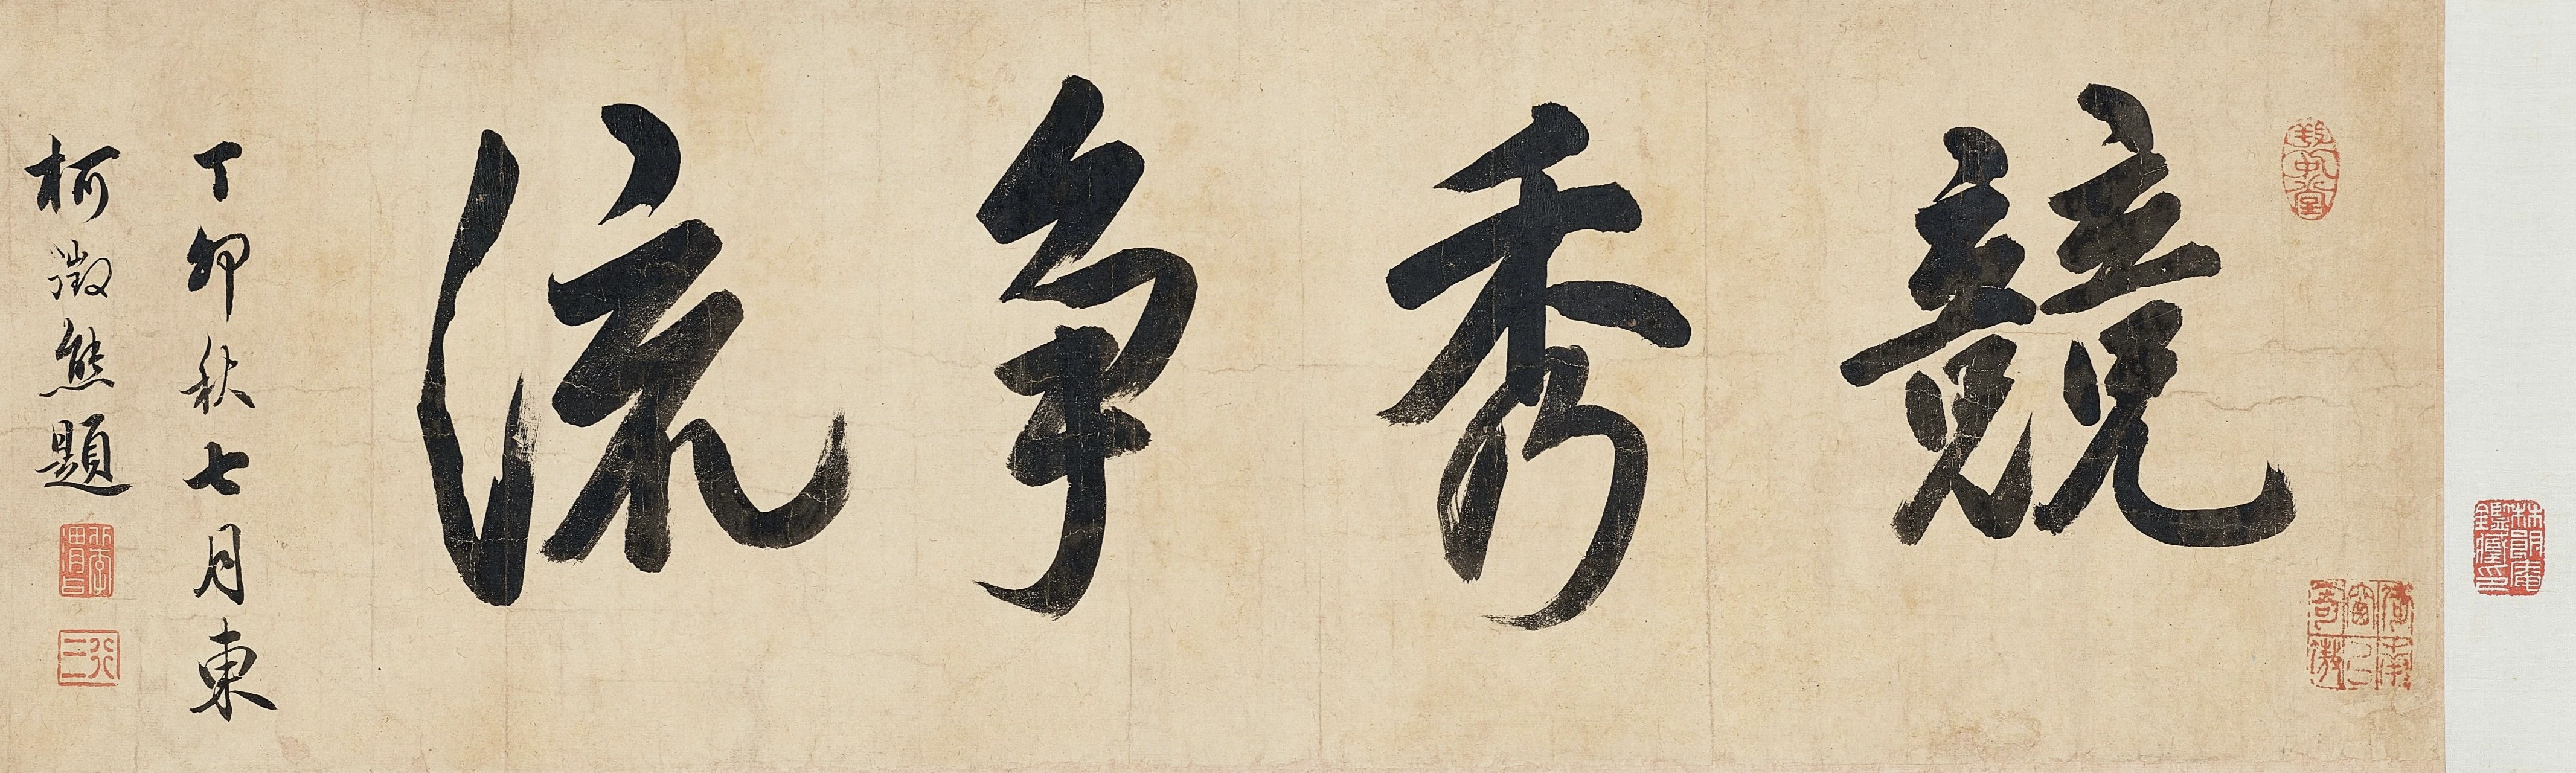 競秀争流
丁卯秋七月東
柯澂熊題